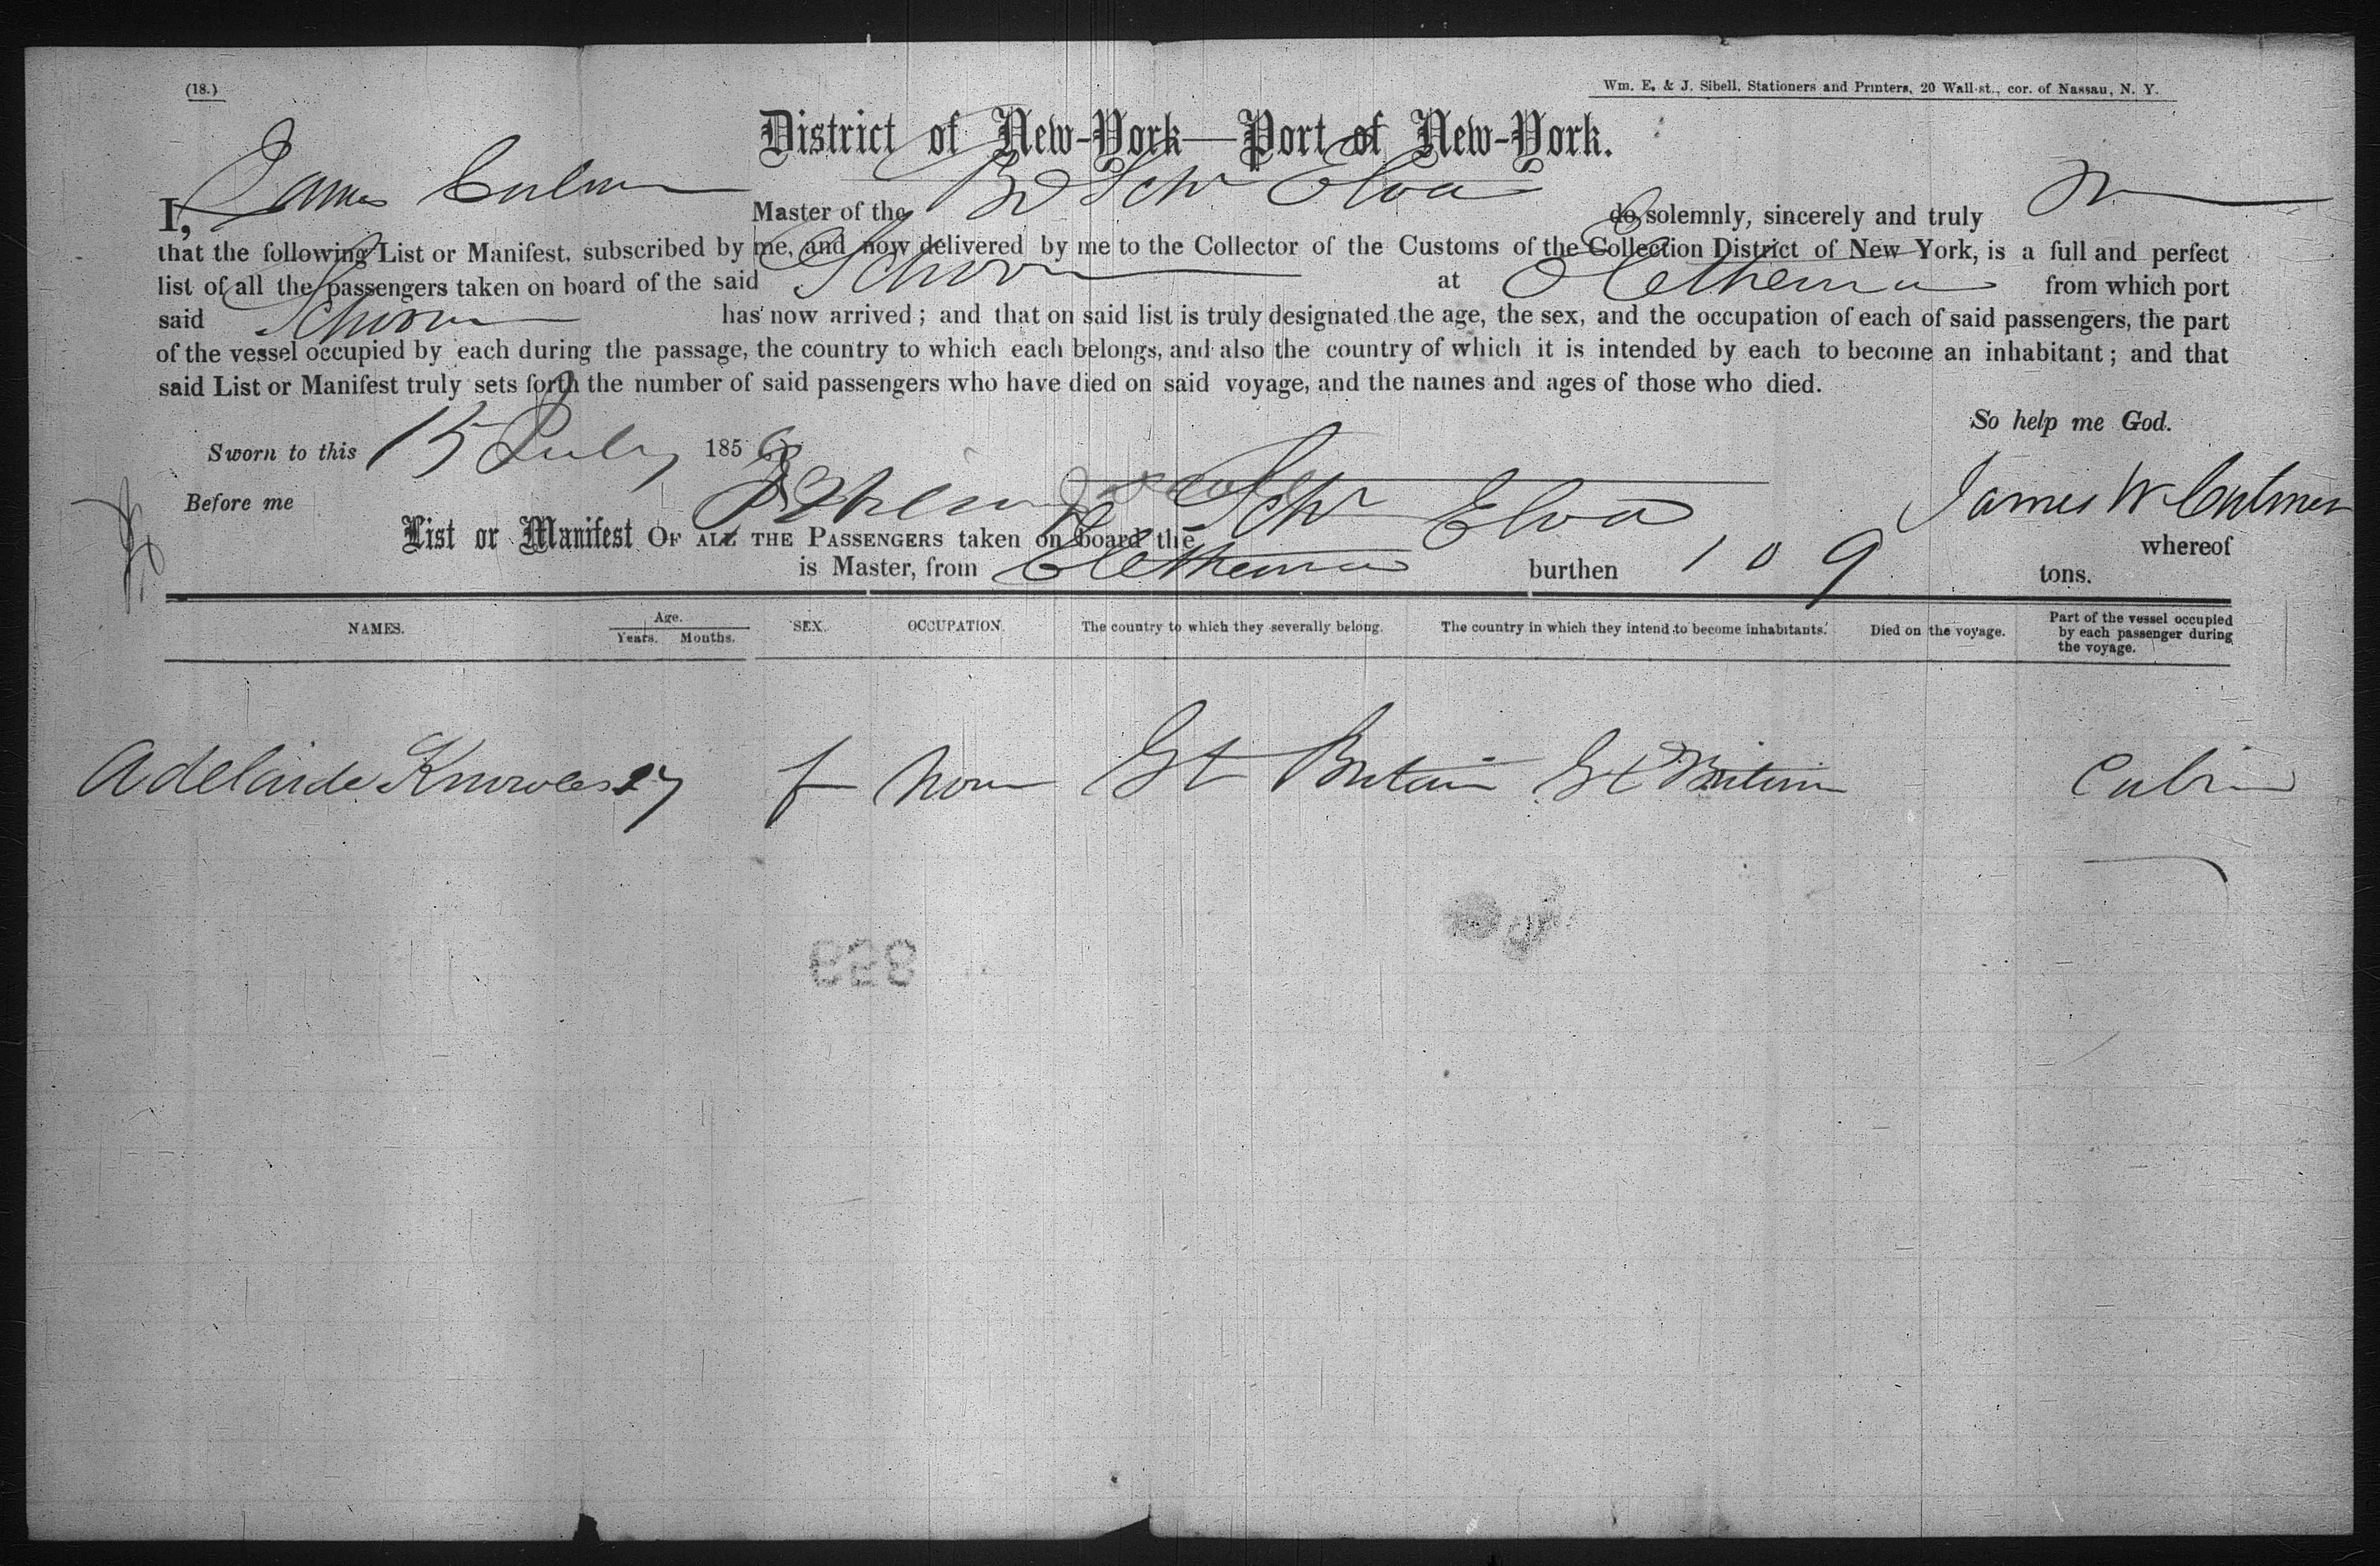 (18.)
Wm. E. & J. Sibell, Stationers and Printers, 20 Wall-st., cor. of Nassau, N. Y.
District of New-York—Port of New-York.
I, James Culmer Master of the Br Schr Elva do solemnly, sincerely and truly
that the following List or Manifest, subscribed by me, and now delivered by me to the Collector of the Customs of the Collection District of New York, is a full and perfect
list of all the passengers taken on board of the said Schoon at Eletheura from which port
said Schoon has now arrived; and that on said list is truly designated the age, the sex, and the occupation of each of said passengers, the part
of the vessel occupied by each during the passage, the country to which each belongs, and also the country of which it is intended by each to become an inhabitant; and that
said List or Manifest truly sets forth the number of said passengers who have died on said voyage, and the names and ages of those who died.
So help me God.
Sworn to this 15 July 1856
Before me James W Culmer
List or Manifest OF ALL THE PASSENGERS taken on board the Schr Elva whereof
is Master, from Eletheura burthen 109 tons.
NAMES. Age. Years. Months. SEX. OCCUPATION. The country to which they severally belong. The country in which they intend to become inhabitants. Died on the voyage. Part of the vessel occupied by each passenger during the voyage.
Adelaide Knowles 27 f None Gt Britain Gt Britain Cabin